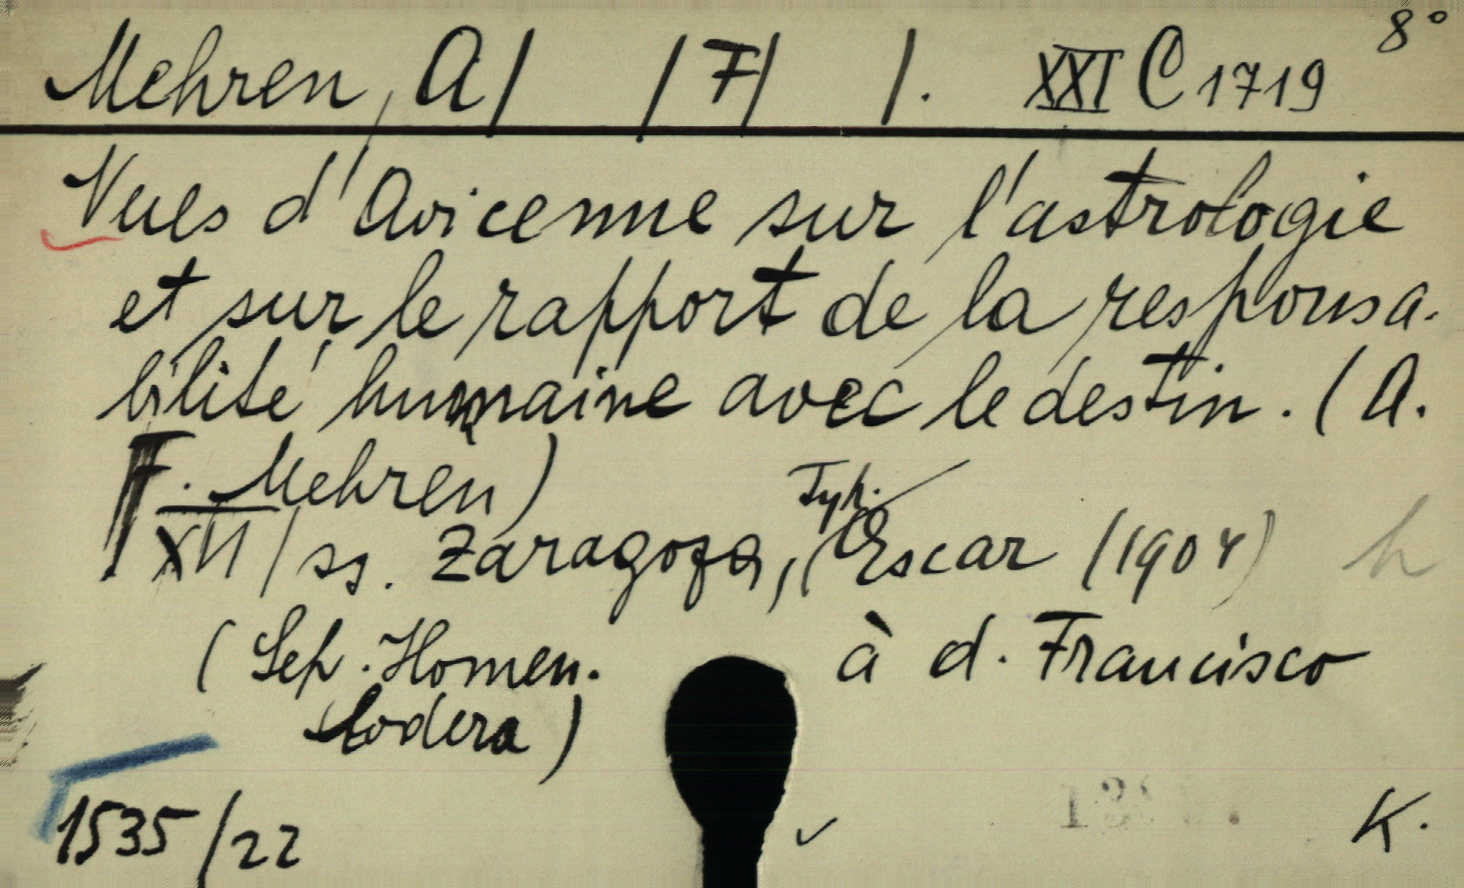 Mehren, A/ /F/ /. XXI C 1719 8°
Vues d'Avicenne sur l'astrologie
et sur le rapport de la responsa-
bilité humaine avec le destin. (A.
F. Mehren)
Typ.
XII/ss. Zaragoza, (Escar (1904) h
(Sep. Homen. à d. Francisco
Codera)
1535/22 K.